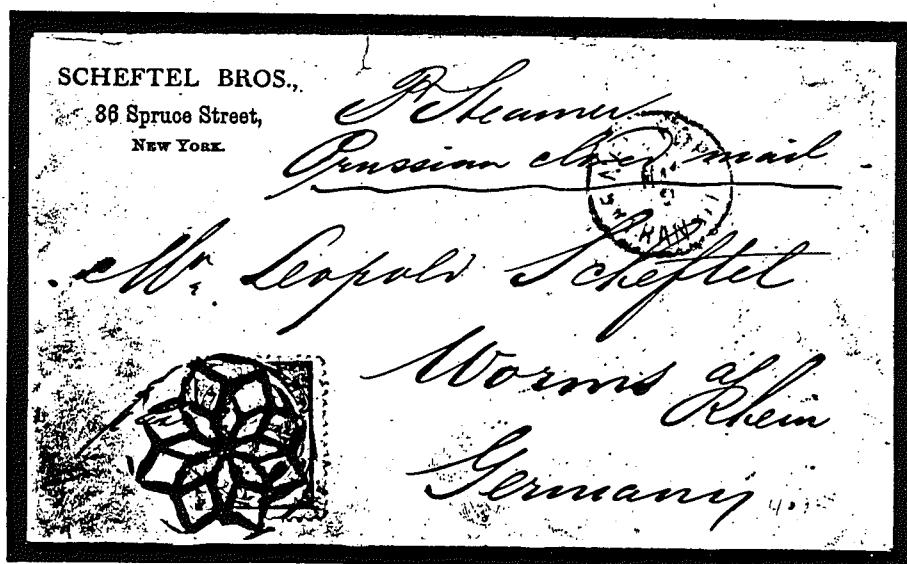 SCHEFTEL BROS.,
36 Spruce Street,
NEW YORK.
P Steamer
Prussian closed mail
Mr. Leopold Scheftel
Worms a/
Rhein
Germany